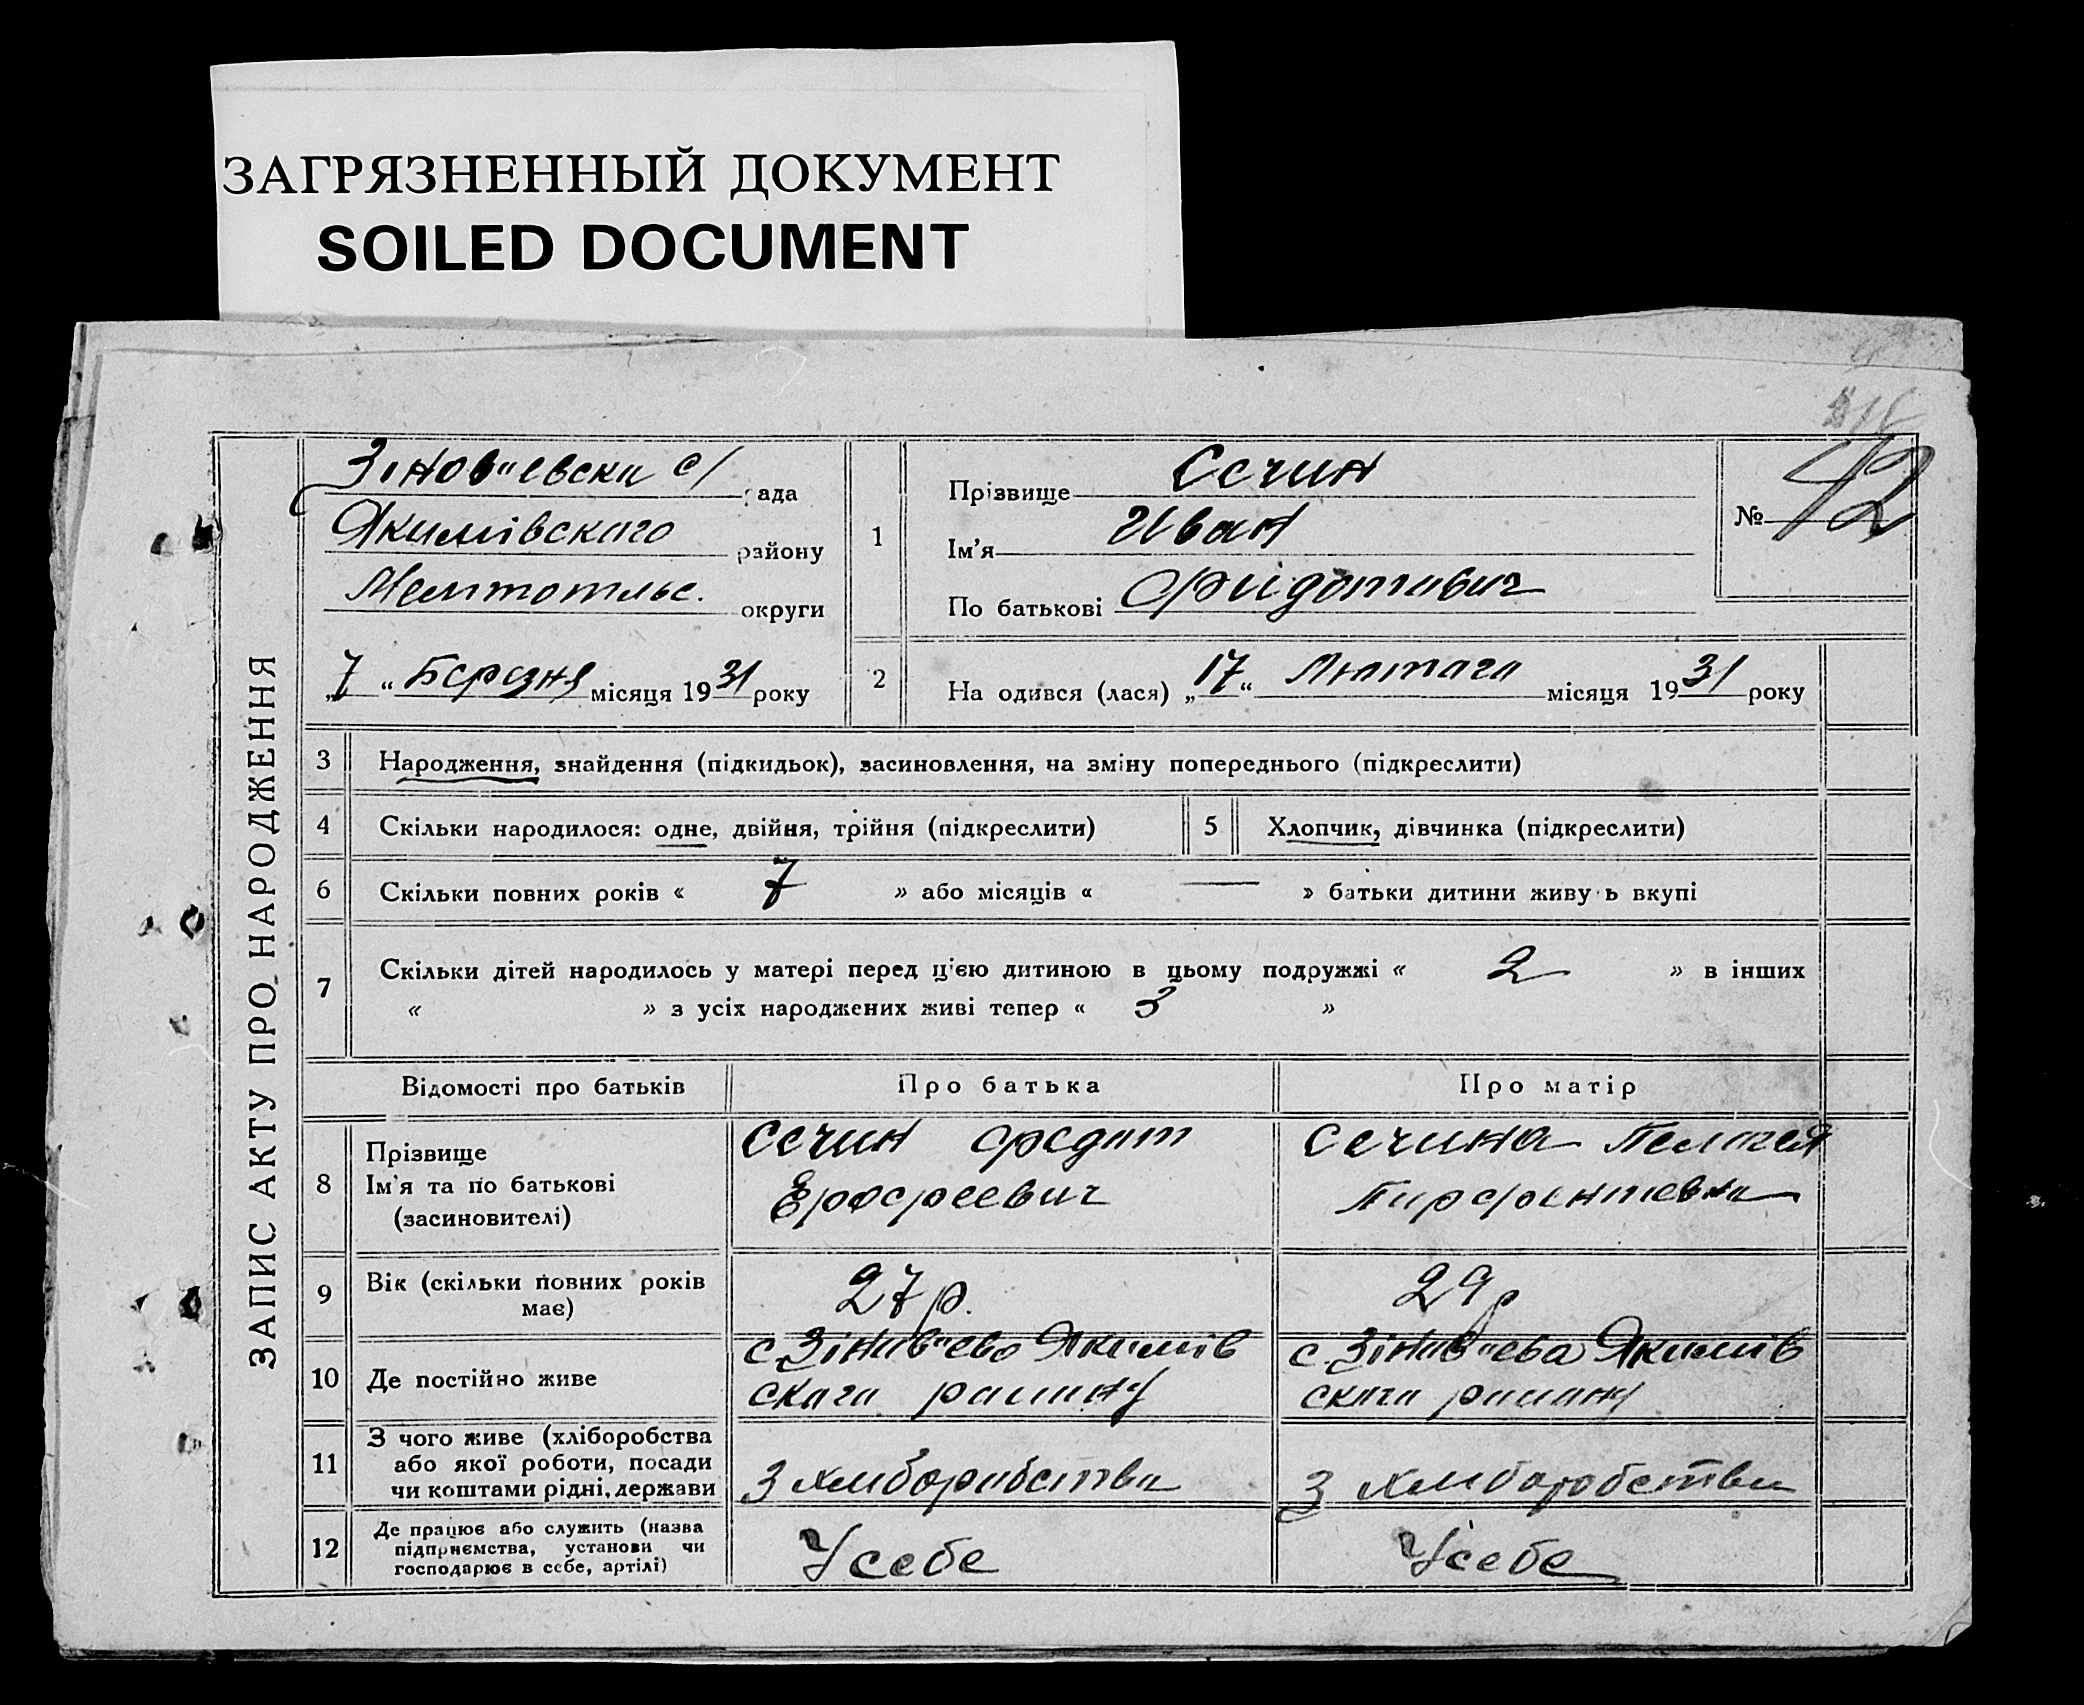 ЗАГРЯЗНЕННЫЙ ДОКУМЕНТ
SOILED DOCUMENT
ЗАПИС АКТУ ПРО НАРОДЖЕННЯ
Зінов"евска с/ рада
Якимівского району
округи
„7“ Березня місяця 1931 року
1
Прізвище Сечин
Ім'я Иван
По батькові Фидотович
№ 42
2
На одився (лася) „17“ Лютаго місяця 1931 року
3 Народження, знайдення (підкидьок), засиновлення, на зміну попереднього (підкреслити)
4 Скільки народилося: одне, двійня, трійня (підкреслити)
5 Хлопчик, дівчинка (підкреслити)
6 Скільки повних років « 7 » або місяців « — » батьки дитини живу ь вкупі
7 Скільки дітей народилось у матері перед цією дитиною в цьому подружжі « 2 » в інших
« » з усіх народжених живі тепер « 3 »
Відомості про батьків Про батька Про матір
8 Прізвище
Ім'я та по батькові
(засиновителі)
Сечин Федот
Ерофеевич
Сечина Пелагея
Парфентевна
9 Вік (скільки повних років
має)
27 р.
29 р
10 Де постійно живе
с. Зінов"ево Якимів
скаго раиану
с. Зінов"ева Якимів
скаго раиану
11 З чого живе (хліборобства
або якої роботи, посади
чи коштами рідні, держави
З хлиборобства
З хлиборобства
12 Де працює або служить (назва
підприємства, установи чи
господарює в себе, артілі)
У себе
У себе